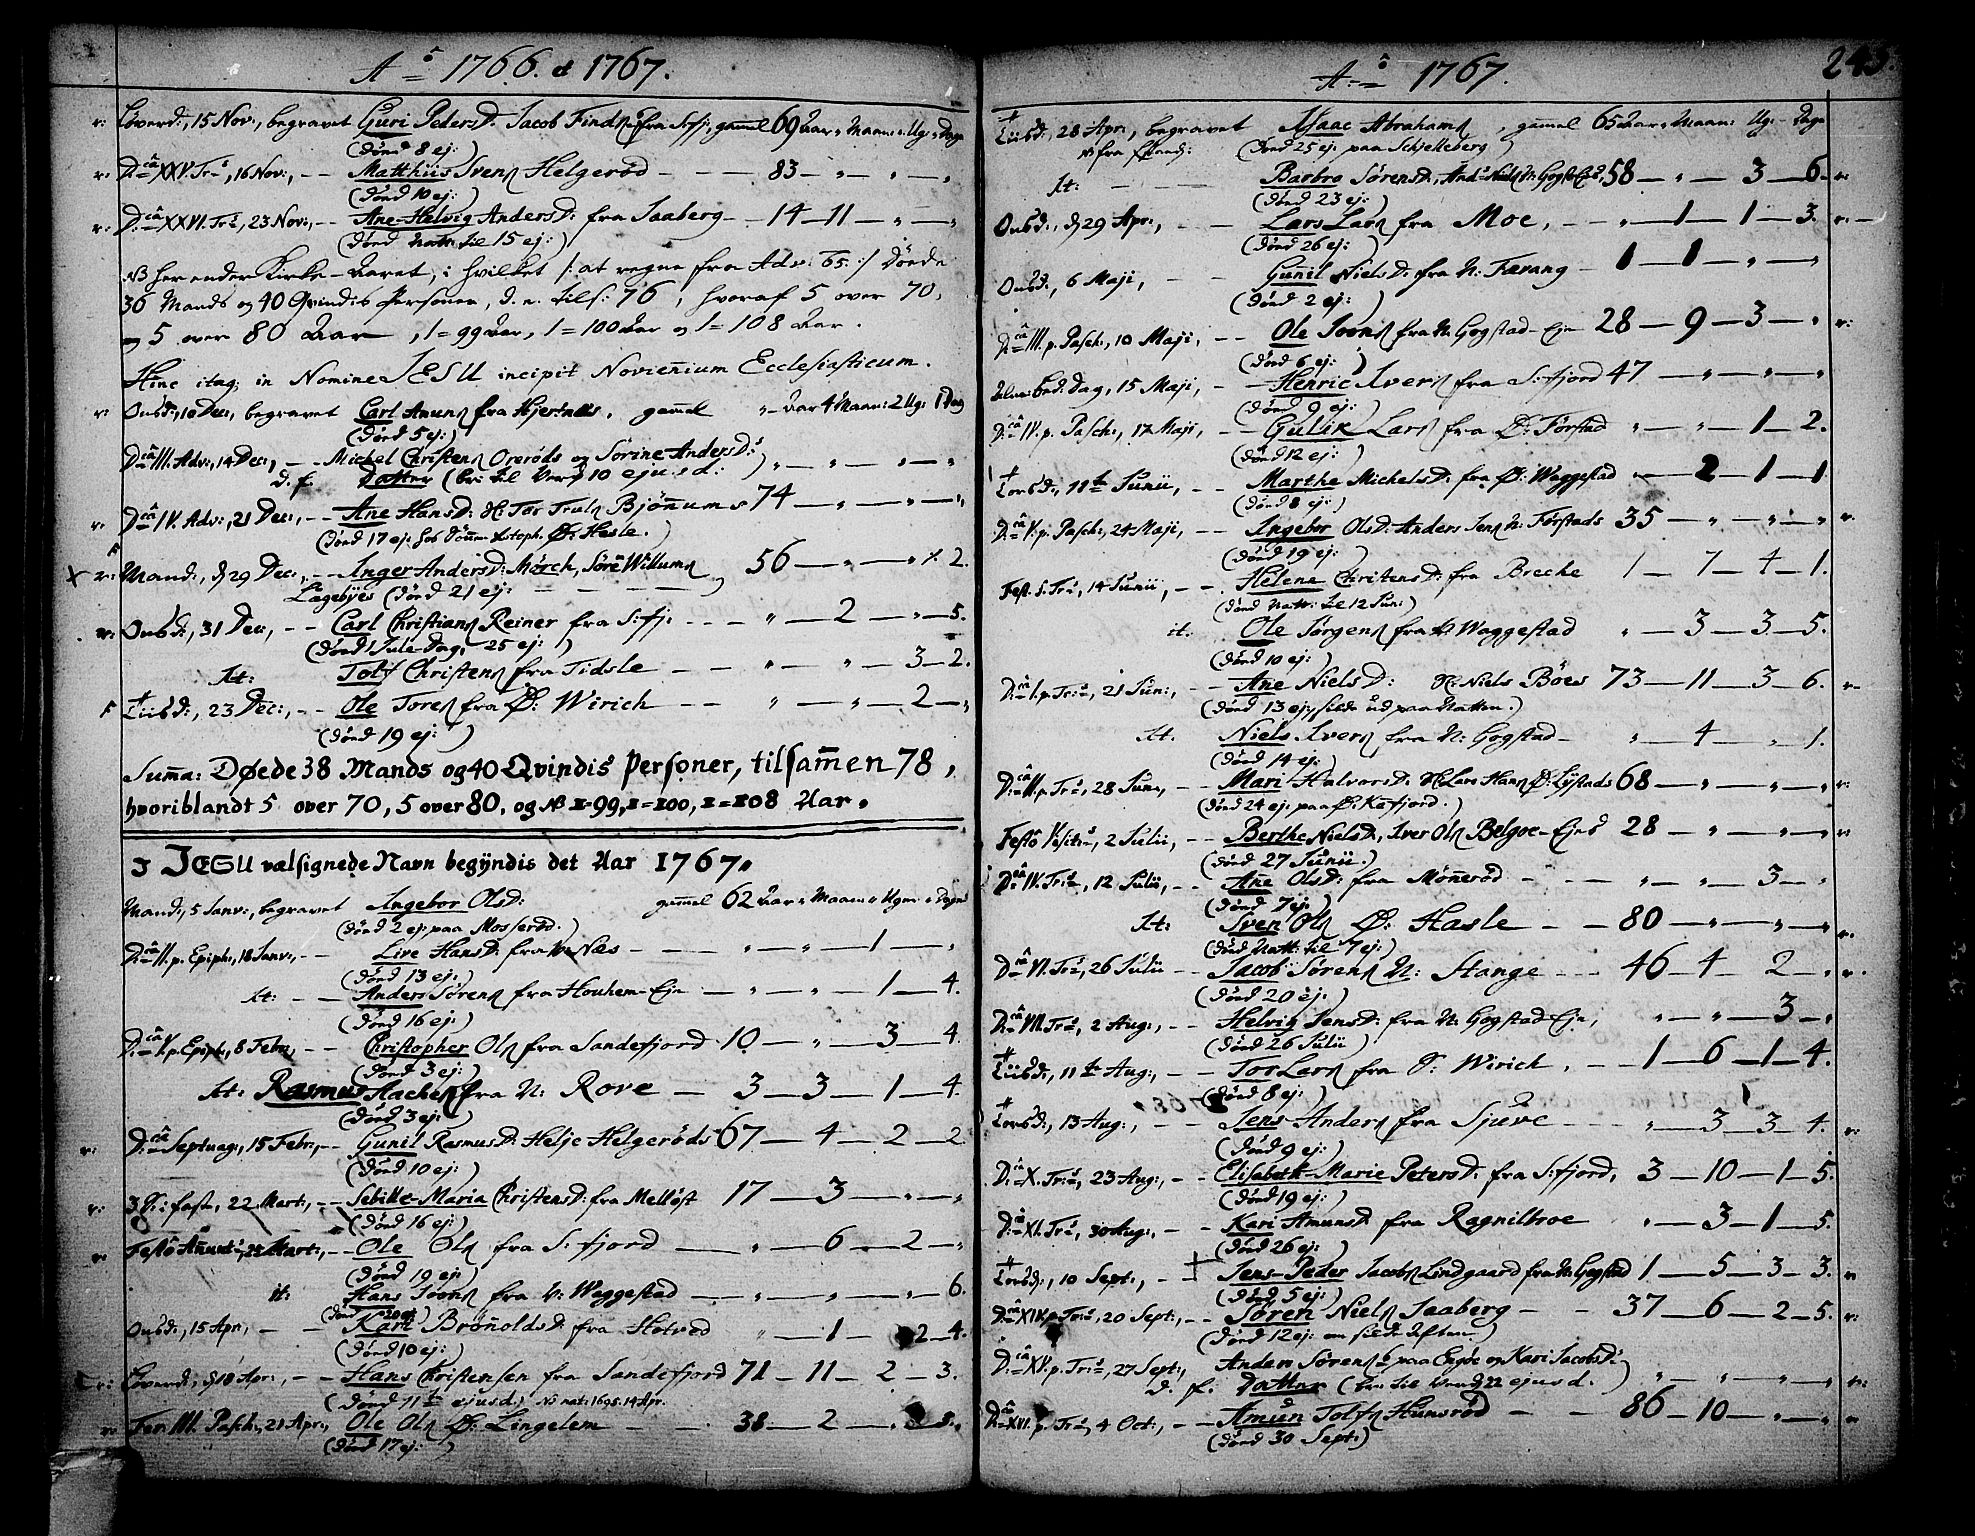 Aō 1766. et 1767.
v: Löverd:, 15 Nov:, begravet Guri PedersD: Jacob Finds fra S:fj:, gammel 69 Aar " Maan: " Ug: " Dage
(død 8 ej:)
v: D:câ XXV. Tr:s, 16 Nov:, -- Matthiis Svens Helgerød - - - 83 - " - " - "
(død 10 ej:)
v: D:câ XXVI. Tr:s, 23 Nov:, -- Ane-Helvig AndersD: fra Jaaberg - - 14 - 11 - " - "
(død Natt: til 15 ej:)
NB her ender Kirke-Aaret, i hvilket /: at regne fra Adv: 65 :/ Döede
36 Mands og 40 Qvindis Personer, d. e. tils: 76, hvoraf 5 over 70,
og 5 over 80 Aar, 1 = 99 Aar, 1 = 100 Aar og 1 = 108 Aar.
Hinc itaq; in Nomine JESU incipit Noviennium Ecclesiasticum.
v: Onsd:, 10 Dec:, begravet Carl Amuns fra Hjertnæs, gammel " Aar 4 Maan: 2 Ug: 1 Dag
(død 5 ej:)
D:câ III. Adv:, 14 Dec:, -- Michel Christens Orerøds og Sørine AndersD:s
d. f. Datter (br: til Verd: 10 ejusd:) " - " - " - "
v: D:câ IV. Adv:, 21 Dec:, -- Ane HansD: H: Tor Truls Bjönnums 74 - " - " - "
(død 17 ej: hos Dönn: Xstoph. Ø: Hasle.)
X v: Mand:, d 29 Dec:, -- Inger AndersD: Mørch, Sörn Willums 56 - " - " - 2.
Lagebyes (død 21 ej: - - - -)
v: Onsd:, 31 Dec:, -- Carl Christians Reiner fra S:fj: - - - " - 2 - " - 5.
(død Jule-Dag, 25 ej:)
It: Tolf Christens fra Tidsle - - " - " - 3 - 2.
Tiisd:, 23 Dec:, -- Ole Tores fra Ø: Wirich - - " - " - 2 - "
(død 19 ej:)
Summa: Døede 38 Mands og 40 Qvindis Personer, tilsammen 78,
hvoriblandt 5 over 70, 5 over 80, og NB 1=99, 1=100, 1=108 Aar.
J JESU valsignede Navn begÿndis det Aar 1767.
Mand:, 5 Janv:, begravet Ingebor OlsD: gammel 62 Aar " Maan: " Uger " Dage
(død 2 ej: paa Mosserød.)
D:câ II. p. Epiph:, 18 Janv:, -- Live HansD: fra V: Næs - - " - " - 1 - "
(død 13 ej:)
It: -- Anders Sørens fra Houhem-Eje - " - " - 1 - 4.
(død 16 ej:)
D:câ V. p. Epiph:, 8 Febr:, -- Christopher Ols fra Sandefjord 10 - " - 3 - 4.
(død 3 ej:)
It: Rasmus Aaches fra N: Rove - 3 - 3 - 1 - 4.
(død 3 ej:)
v: D:câ Septuag:, 15 Febr:, -- Gunil RasmusD: Helje Helgerøds 67 - 4 - 2 - 2
(død 10 ej:)
v: 3 Di: fast:, 22 Mart:, -- Sebille-Maria ChristensD: fra Melløst 17 - 3 - " - "
(død 16 ej:)
v: Festô Anunt:, 25 Mart:, -- Ole Ols fra S:fjord - " - 6 - 2 - "
(død 19 ej:)
it: Hans Joens fra V: Waggestad - " - " - " - 6.
(død 20 ej:)
Onsd:, 15 Apr:, - - Kari BrönnoldsD: fra Hotved " - 1 - 2 - 4.
(død 10 ej:)
v: Löverd:, d 18 Apr:, -- Hans Christensen fra Sandefjord 71 - 11 - 2 - 3.
(død 11te ejusd:) NB nat: 1695. 14 Apr.
v: Fer: III. Pasch:, 21 Apr:, Ole Ols Ø: Lingelem - - 38 - 2 - " - 3.
(død 17 ej:)
Aō 1767. 245.
Tiisd:, 28 Apr:, begravet Isaac Abrahams, gammel 65 Aar " Maan: " Ug: - Dage
(død 25 ej: paa Schjelleberg)
It: - - - Barbro SørensD:, And: Niels N: Gogst: Eje, 58 - " - 3 - 6. v:
(død 23 ej:)
Onsd:, d 29 Apr:, - - Lars Lars fra Moe, - " - 1 - 1 - 3. v:
(død 26 ej:)
Onsd:, 6 Maji, - - Gunil NielsD: fra N: Farang - 1 - 1 - " - "
(død 2 ej:)
D:câ III. p. Pasch:, 10 Maji, -- Ole Joens fra N: Gogstad-Eje 28 - 9 - 3 - " v:
(død 6 ej:)
Alm: Bed: Dag, 15 Maji, - Henric Ivers fra S:fjord 47 - " - " - "
(død 9 ej:)
D:câ IV. p. Pasch:, 17 Maji, -- Gulik Lars fra Ø: Førstad " - " - 1 - 2.
(død 12 ej:)
Torsd:, 11te Junii, -- Marthe MichelsD: fra Ø: Waggestad " - 2 - 1 - 1
(død 8 ej:)
D:câ V. p. Pasch:, 24 Maji, - Ingebor OlsD: Anders Jens N: Førstads 35 - " - " - " v.
(død 19 ej:)
Fest. S. Tr:s, 14 Junii, -- Helene ChristensD: fra Breche 1 - 7 - 4 - 1.
(død Natt: til 12 Jun:)
it. Ole Jørgens fra V: Waggestad " - 3 - 3 - 5.
(død 10 ej:)
D:câ I. p. Tr:s, 21 Jun:, -- Ane NielsD: H: Niels Böes 73 - 11 - 3 - 6. v-
(død 13 ej: silde ud paa Natten.)
It. Niels Ivers fra N: Gogstad - " - 4 - " - 1.
(død 14 ej:)
D:câ II. p. Tr:s, 28 Jun:, -- Mari HalvorsD: H: Lars Hans Ø: Lystads 68 - " - " - " v:
(død 24 ej: paa Ø: Kafjord.)
Festô Visit:, 2 Julii, -- Berthe NielsD:, Iver Ols Belgoe-Ejes 28 - " - " - " v
(død 27 Junii.)
D:câ IV. Tr:s, 12 Julii, -- Anne OlsD: fra Mönnerød - - " - " - 3 - "
(død 7 ej:)
It: Sven Ols Ø: Hasle - - 80 - " - " - " v.
(død Natt: til 7 ej:)
D:câ VI. Tr:s, 26 Julii -- Jacob Sørens N: Stange - - 46 - 4 - 2 - " v.
(død 20 ej:)
D:câ VII. Tr:s, 2 Aug:, -- Helvig JensD: fra N: Gogstad-Eje, " - " - 3 - "
(død 26 Julii)
Tiisd:, 11te Aug:, -- Tor Lars fra Ø: Wirich, - - 1 - 6 - 1 - 4.
(død 8 ej:)
Torsd:, 13 Aug:, -- Jens Anders fra Sjuve - - - " - 3 - 3 - 4. v:
(død 9 ej:)
D:câ X. Tr:s, 23 Aug:, -- Elisabeth-Marie PetersD: fra S:fjord, 3 - 10 - 1 - 5.
(død 19 ej:)
D:câ XI. Tr:s, 30 Aug:, -- Kari AmunsD: fra Ragniltroe " - 3 - 1 - 5.
(død 26 ej:)
Torsd:, 10 Sept:, -- Jens-Peder Jacobs Lindgaard fra N: Gogstad 1 - 5 - 3 - 3. v
(død 5 ej:)
D:câ XIV. p. Tr:s, 20 Sept:, -- Søren Niels Jaaberg - - 37 - 6 - 2 - 5. v:
(død 12 ej: om sild: Aften.)
D:câ XV. p. Tr:s, 27 Sept:, Anders Sørens paa Engøe og Kari JacobsD:
d. f. Datter (br: til Verd: 22 ejusd.) " - " - " - " v:
D:câ XVI. p. Tr:s, 4 Oct:, -- Amun Tolfs Hunsrød - - 86 - 10 - " - " v
(død 30 Sept:)